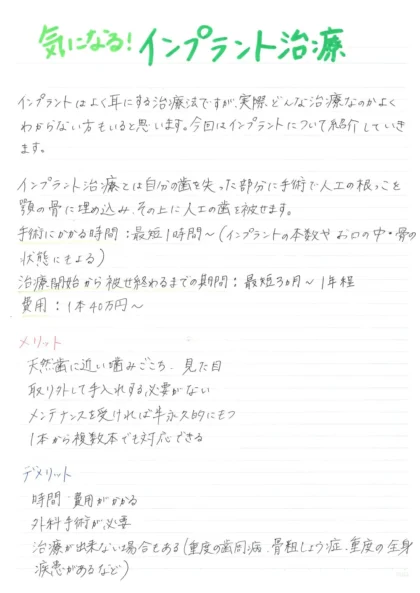 気になる!インプラント治療
インプラントはよく耳にする治療法ですが、実際、どんな治療なのかよく
わからない方もいると思います。今回はインプラントについて紹介していき
ます。
インプラント治療とは自分の歯を失った部分に手術で人工の根っこを
顎の骨に埋め込み、その上に人工の歯を被せます。
手術にかかる時間:最短1時間〜(インプラントの本数や お口の中・骨の
状態にもよる)
治療開始から被せ終わるまでの期間:最短3ヵ月〜1年程
費用:1本40万円〜
メリット
天然歯に近い噛みごこち、見た目
取り外して手入れする必要がない
メンテナンスを受ければ半永久的にもつ
1本から複数本でも対応できる
デメリット
時間・費用がかかる
外科手術が必要
治療が出来ない場合もある(重度の歯周病、骨粗しょう症、重度の全身
疾患があるなど)